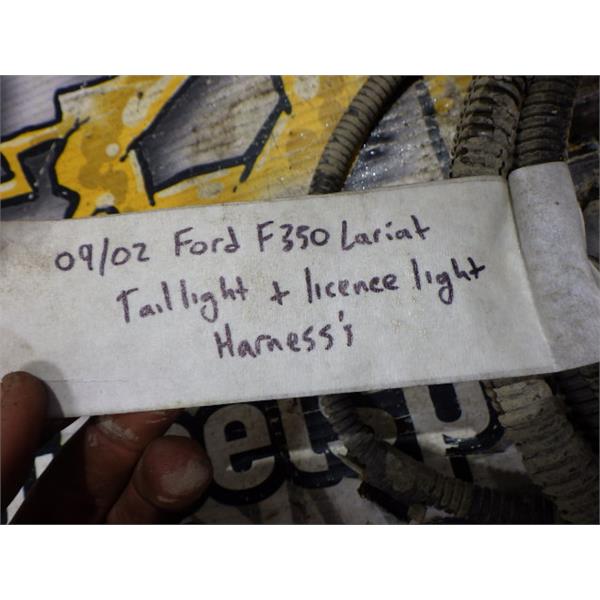 09/02 Ford F350 Lariat
Taillight + licence light
Harness's
etsy